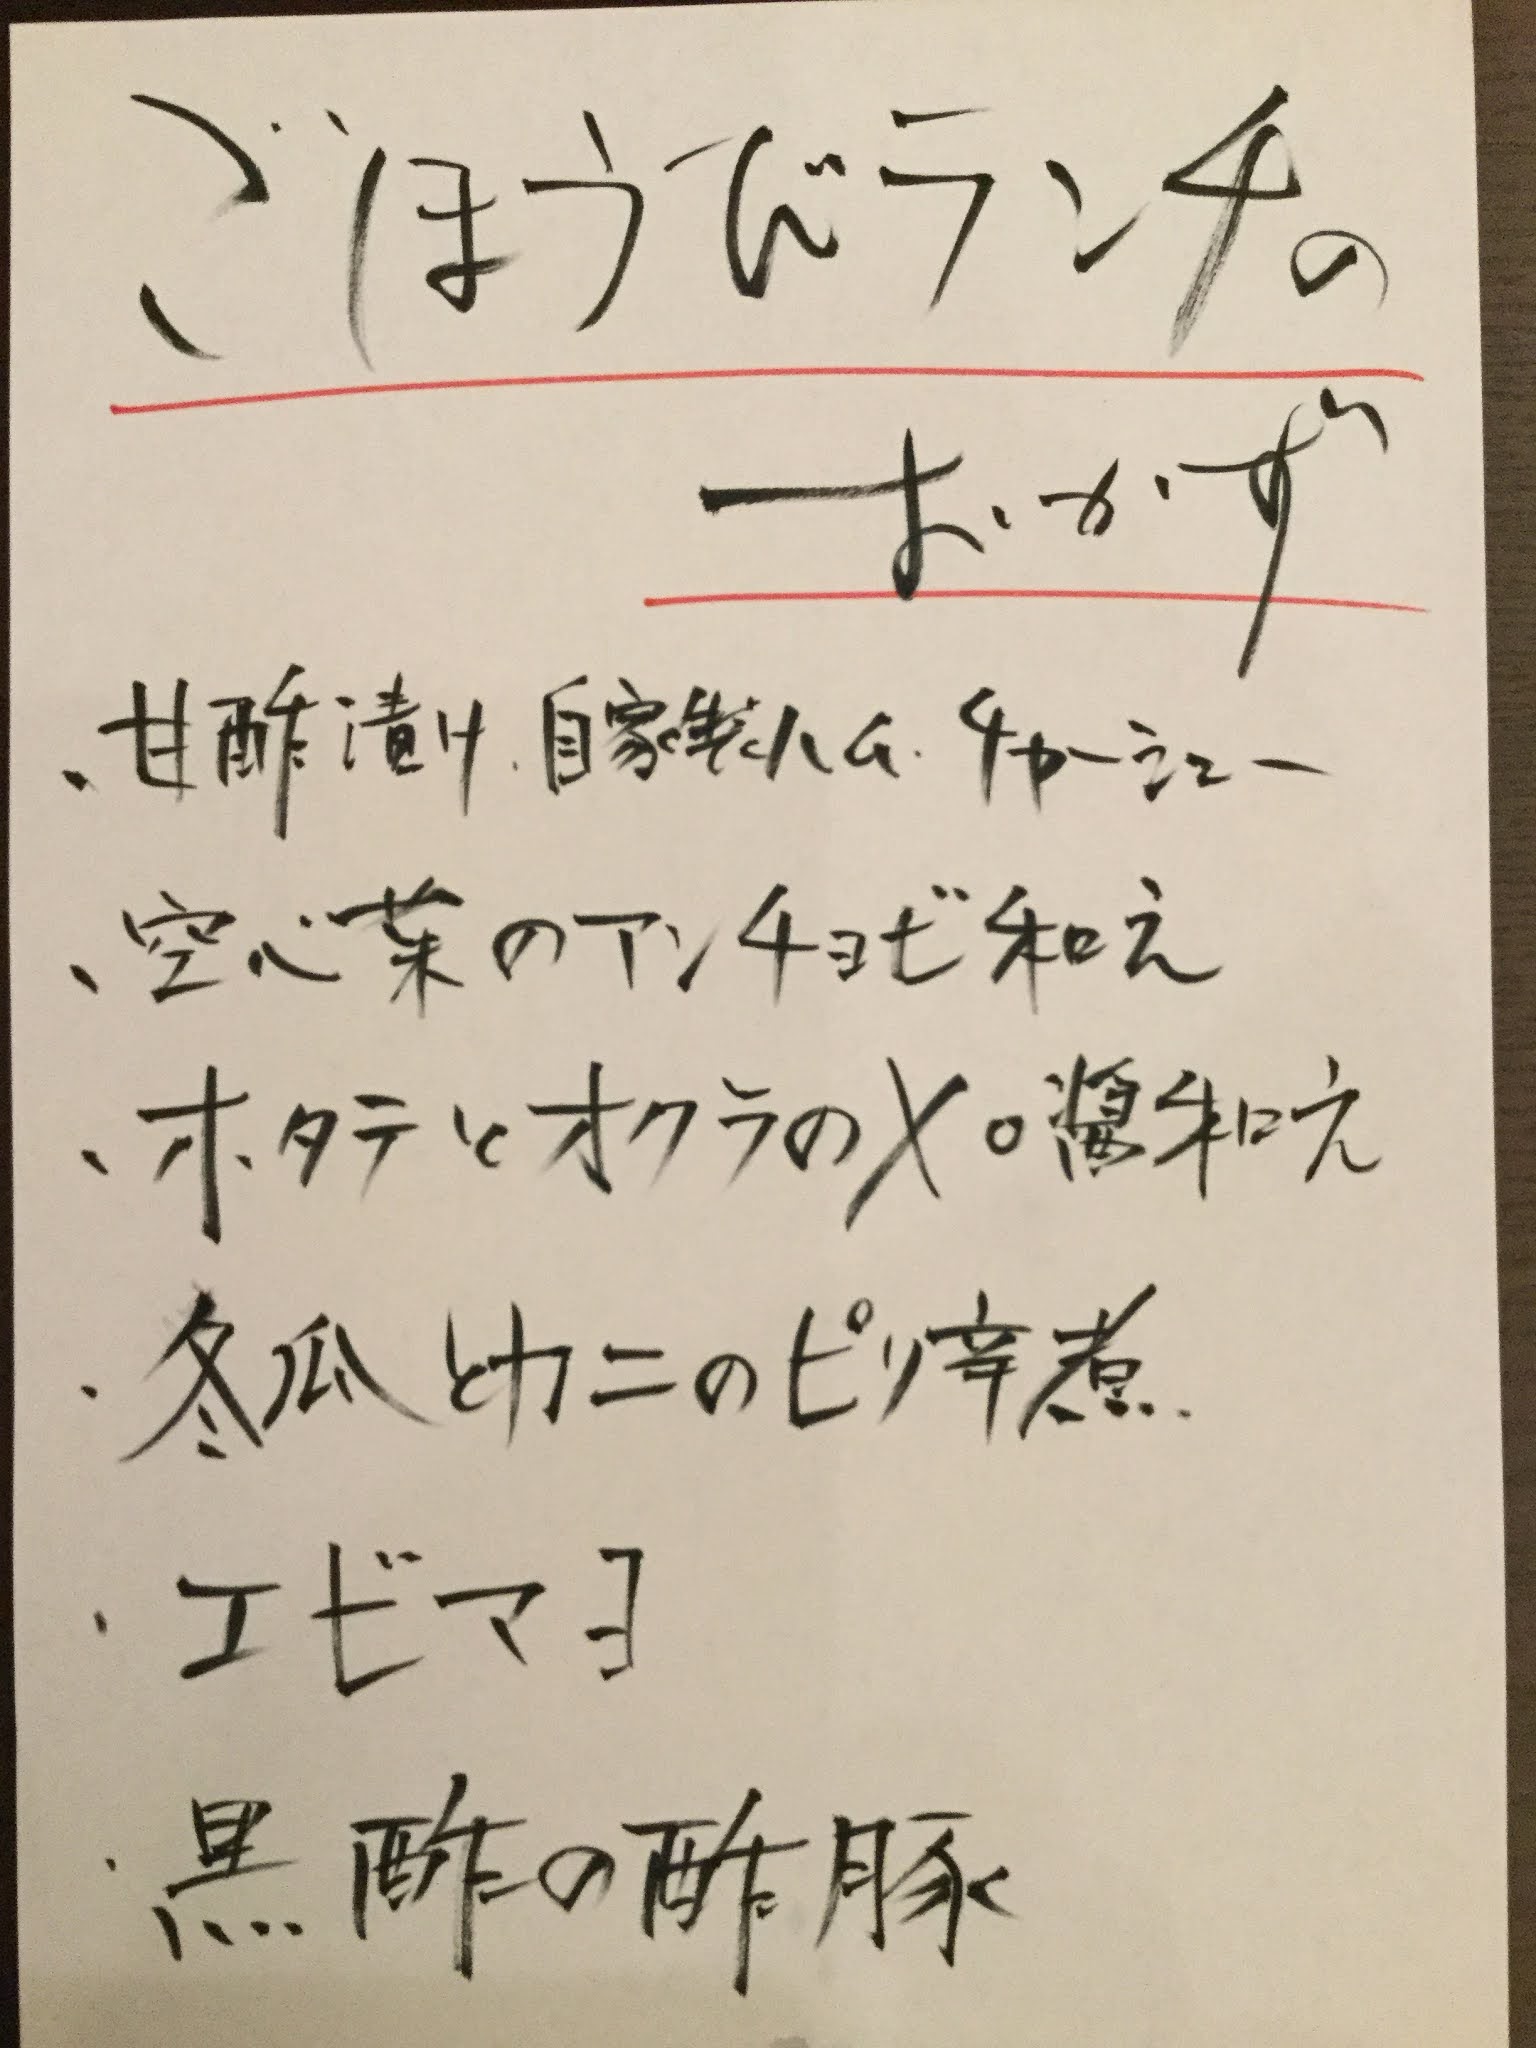 ごほうびランチの
おかず
・甘酢漬け.自家製ハム.チャーシュー
・空心菜のアンチョビ和え
・ホタテとオクラのXO醤和え
・冬瓜とカニのピリ辛煮.
・エビマヨ
・黒酢の酢豚